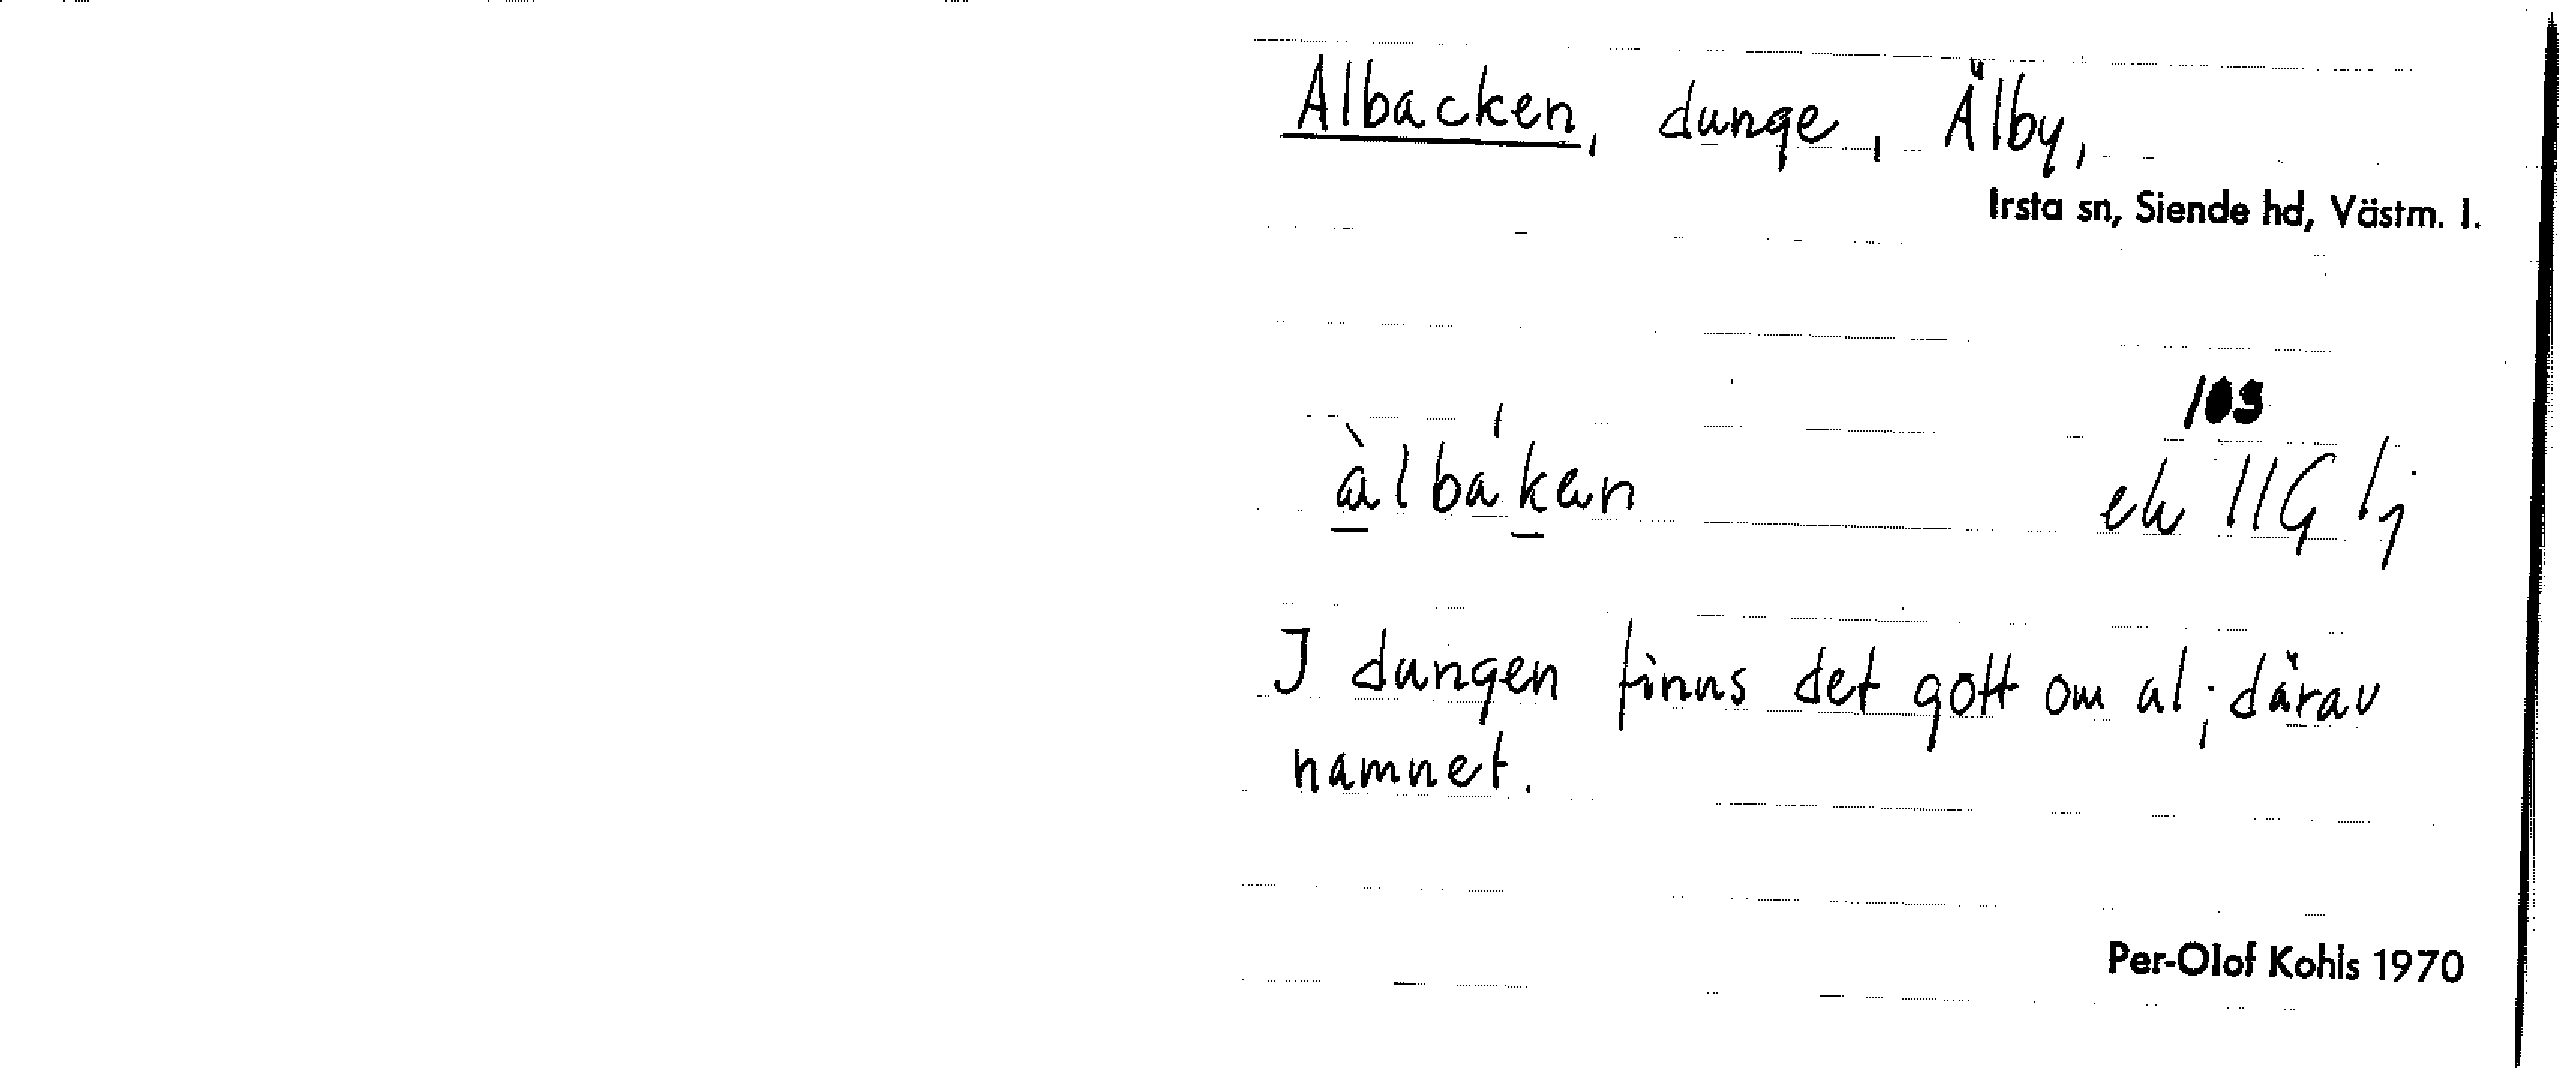 Albacken, dunge, Älby,
Irsta sn, Siende hd, Västm. l.
103
àlbákен
ek 11G 1j
I dungen finns det gott om al; därav
namnet.
Per-Olof Kohls 1970